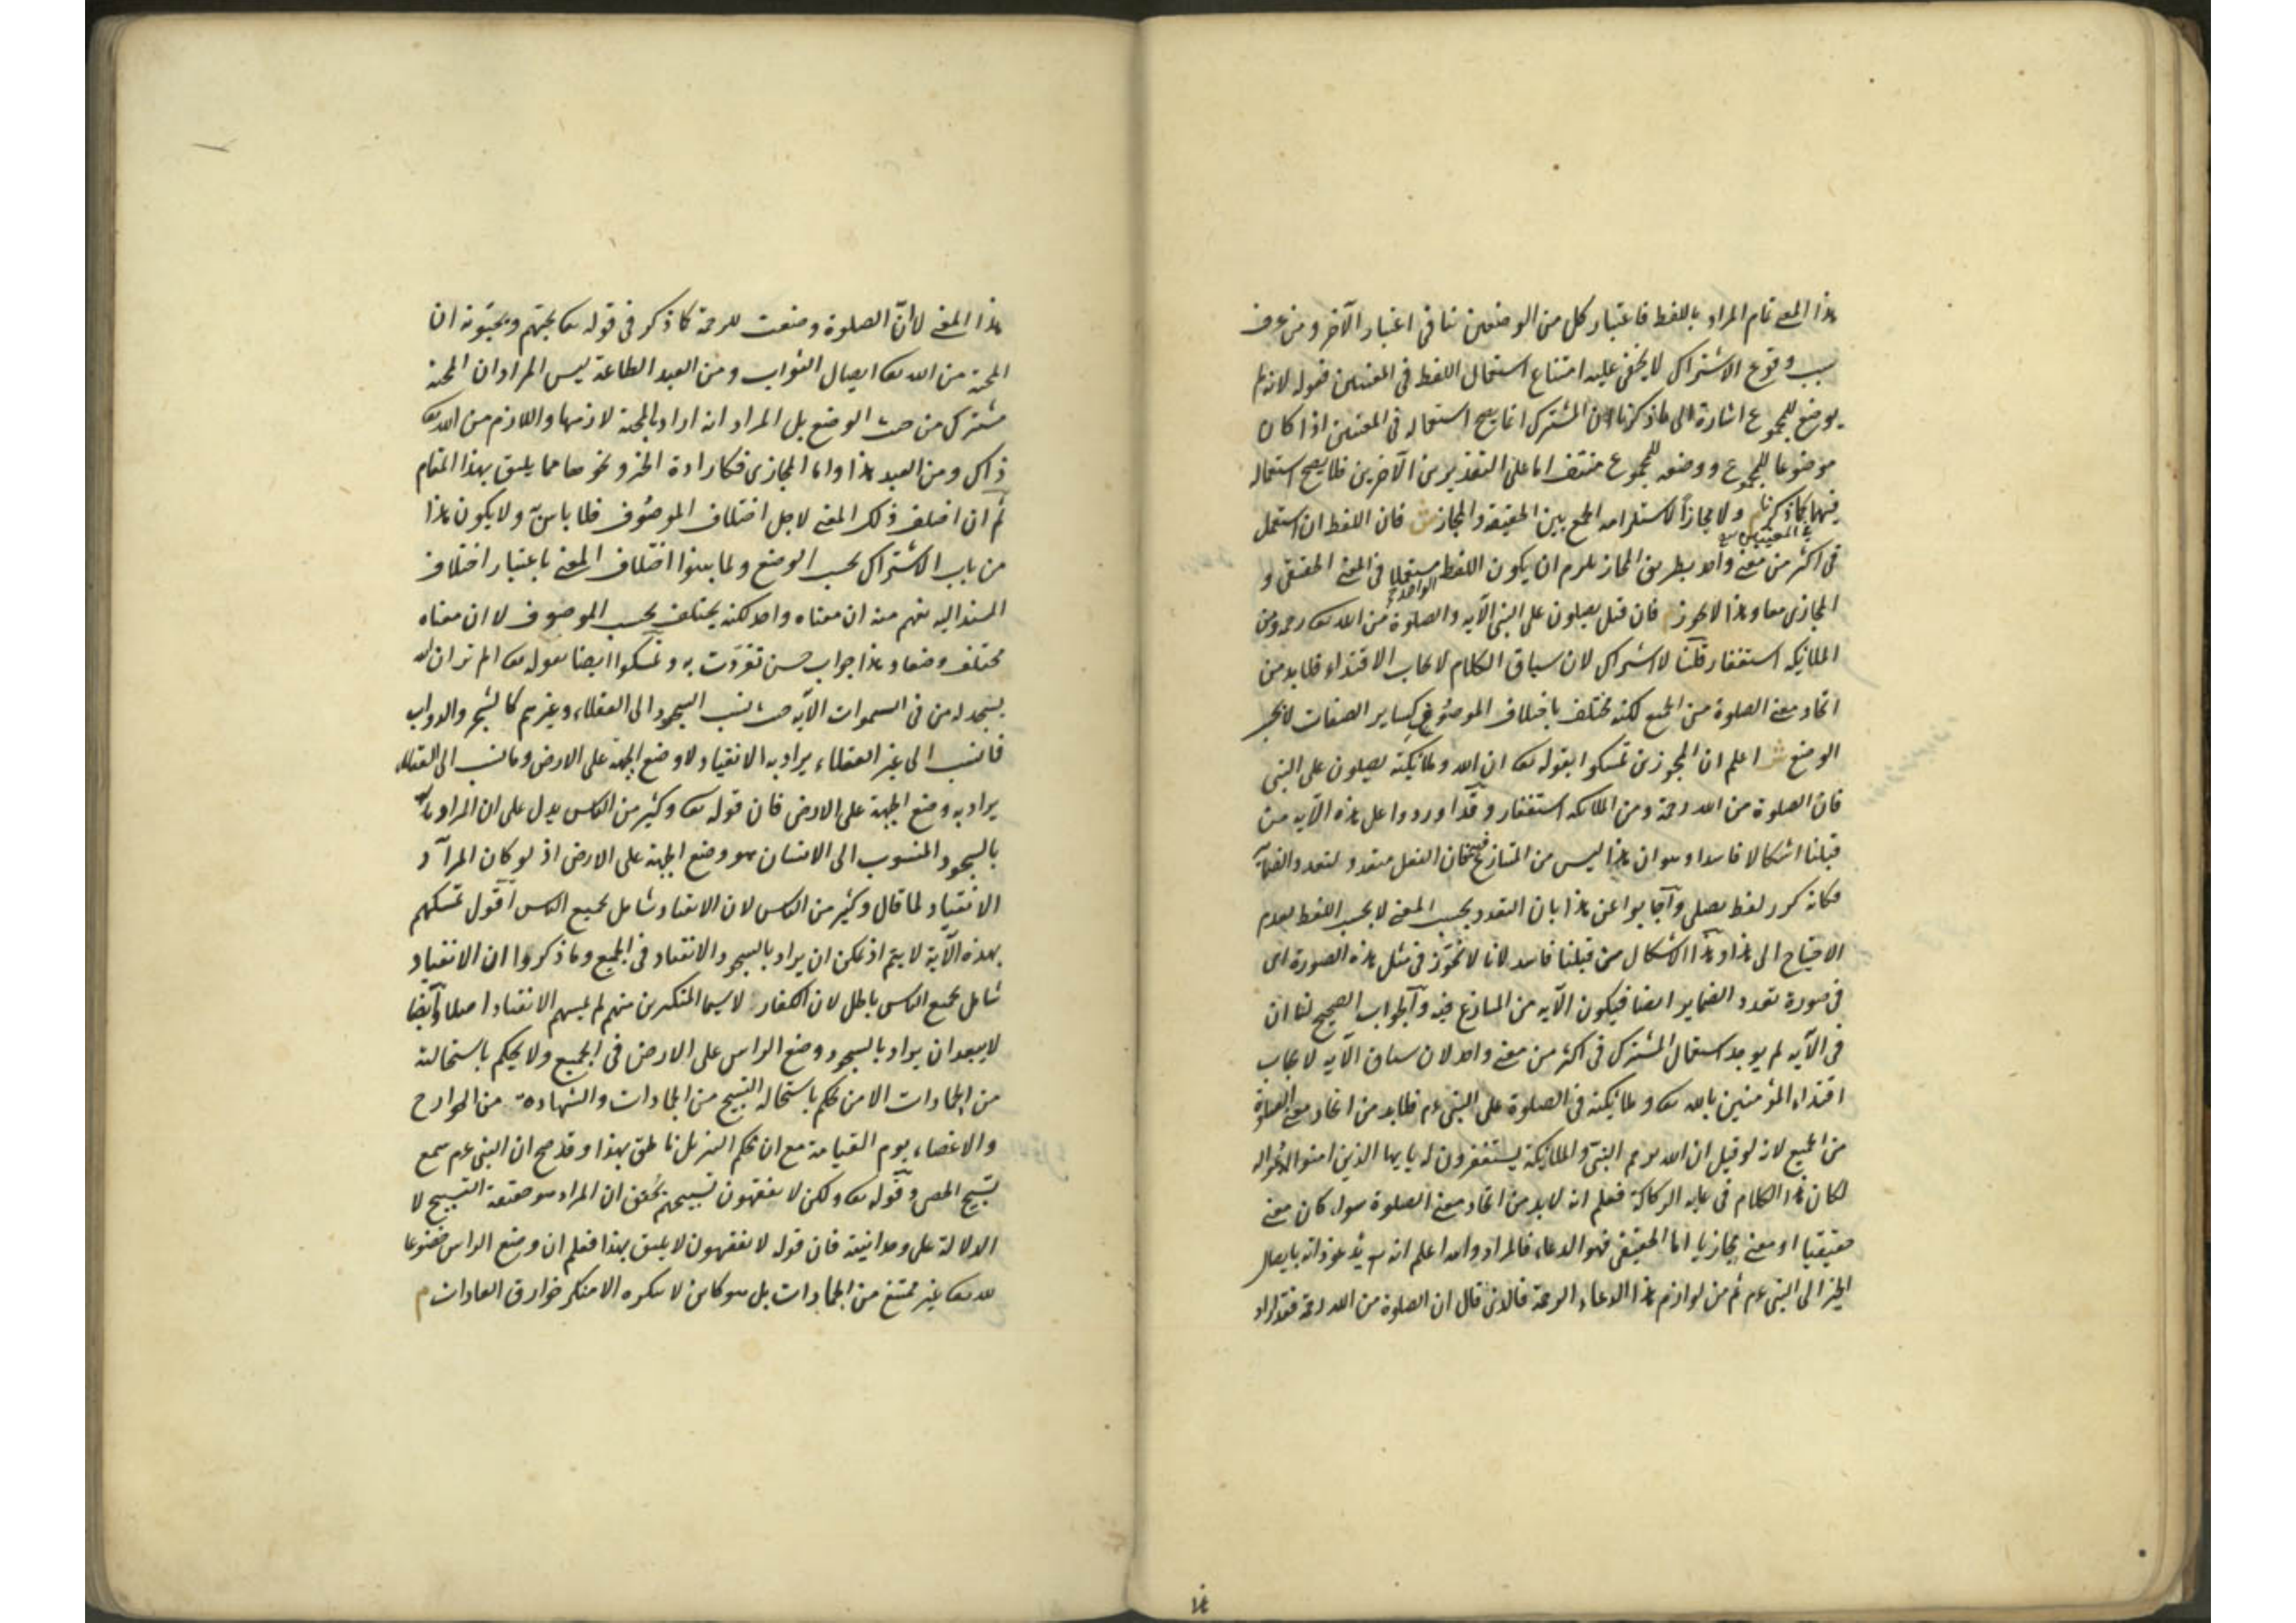 هذا المعنى تمام المراد باللفظ فاعتبار كل من الوضعين ينافى اعتبار الآخر ومن عرف
سبب وقوع الاشتراك لا يخفى عليه امتناع استعمال اللفظ فى المعنيين فقوله لانه لم
يوضع للمجموع اشارة الى ما ذكرنا ان المشترك انما يصح استعماله فى المعنيين اذا كان
موضوعا للمجموع ووضعه للمجموع منتف اما على التقديرين الآخرين فلا يصح استعماله
فيهما كما ذكرنا م ولا مجازا لاستلزامه الجمع بين الحقيقة والمجاز ش فان اللفظ ان استعمل
فى اكثر من معنى واحد بطريق المجاز يلزم ان يكون اللفظ الواحد مستعملا فى المعنى الحقيقى و
المجازى معا وهذا لا يجوز م فان قيل يصلون على النبى الآية والصلوة من الله تعه رحمة ومن
الملائكة استغفار قلنا لا اشتراك لان سياق الكلام لايجاب الاقتداء فلا بد من
اتحاد معنى الصلوة من الجميع لكنه يختلف باختلاف الموصوف كساير الصفات لا بحسب
الوضع ش اعلم ان المجوزين تمسكوا بقوله تعه ان الله وملائكته يصلون على النبى
فان الصلوة من الله رحمة ومن الملائكة استغفار وقد اوردوا على هذه الآية من
قبلنا اشكالا فاسدا وهو ان هذا ليس من المتنازع فيه فان الفعل متعدد لتعدد الضمائر
فكانه كرر لفظ يصلى واجابوا عن هذا بان التعدد بحسب المعنى لا بحسب اللفظ لعدم
الاحتياج الى هذا وهذا الاشكال من قبلنا فاسد لانا لا نجوز فى مثل هذه الصورة اى
فى صورة تعدد الضماير ايضا فيكون الآية من المتنازع فيه والجواب الصحيح لنا ان
فى الآية لم يوجد استعمال المشترك فى اكثر من معنى واحد لان سياق الآية لايجاب
اقتداء المؤمنين بالله تعه وملائكته فى الصلوة على النبى عم فلا بد من اتحاد معنى الصلوة
من الجميع لانه لو قيل ان الله يرحم النبى والملائكة يستغفرون له يا يها الذين امنوا ادعوا له
لكان هذا الكلام فى غاية الركاكة فعلم انه لا بد من اتحاد معنى الصلوة سواء كان معنى
حقيقيا او معنى مجازيا اما الحقيقى فهو الدعاء فالمراد والله اعلم انه تع يدعو ذاته بايصال
الخير الى النبى عم ثم من لوازم هذا الدعاء الرحمة فالذى قال ان الصلوة من الله رحمة فقد اراد
هذا المعنى لا ان الصلوة وضعت للرحمة كما ذكر فى قوله تعه يحبهم ويحبونه ان
المحبة من الله تعه ايصال الثواب ومن العبد الطاعة ليس المراد ان المحبة
مشترك من حيث الوضع بل المراد انه اراد بالمحبة لازمها واللازم من الله تعه
ذاك ومن العبد هذا واما المجازى فكارادة الخير ونحوها مما يليق بهذا المقام
ثم ان اختلف ذلك المعنى لاجل اختلاف الموصوف فلا باس به ولا يكون هذا
من باب الاشتراك بحسب الوضع ولما بينوا اختلاف المعنى باعتبار اختلاف
المسند اليه يفهم منه ان معناه واحد لكنه يختلف بحسب الموصوف لا ان معناه
مختلف وضعا وهذا جواب حسن تفردت به وتمسكوا ايضا بقوله تعه الم تر ان الله
يسجد له من فى السموات الآية حيث نسب السجود الى العقلاء وغيرهم كالشجر والدواب
فما نسب الى غير العقلاء يراد به الانقياد لا وضع الجبهة على الارض وما نسب الى العقلاء
يراد به وضع الجبهة على الارض فان قوله تعه وكثير من الناس يدل على ان المراد
بالسجود المنسوب الى الانسان هو وضع الجبهة على الارض اذ لو كان المراد
الانقياد لما قال وكثير من الناس لان الانقياد شامل لجميع الناس اقول تمسكهم
بهذه الآية لا يتم اذ يمكن ان يراد بالسجود الانقياد فى الجميع وما ذكروا ان الانقياد
شامل لجميع الناس باطل لان الكفار لا سيما المتكبرين منهم لم يمسهم الانقياد اصلا وايضا
لا يبعد ان يراد بالسجود وضع الراس على الارض فى الجميع ولا يحكم باستحالته
من الجمادات الا من يحكم باستحالة التسبيح من الجمادات والشهادة من الجوارح
والاعضاء يوم القيامة مع ان محكم التنزيل ناطق بهذا وقد صح ان النبى عم سمع
تسبيح الحصى وقوله تعه ولكن لا يفقهون تسبيحهم يحقق ان المراد هو حقيقة التسبيح لا
الدلالة على وحدانيته فان قوله لا يفقهون لا يليق بهذا فعلم ان وضع الراس خضوعا
لله تعه غير ممتنع من الجمادات بل هو كائن لا ينكره الا منكر خوارق العادات م